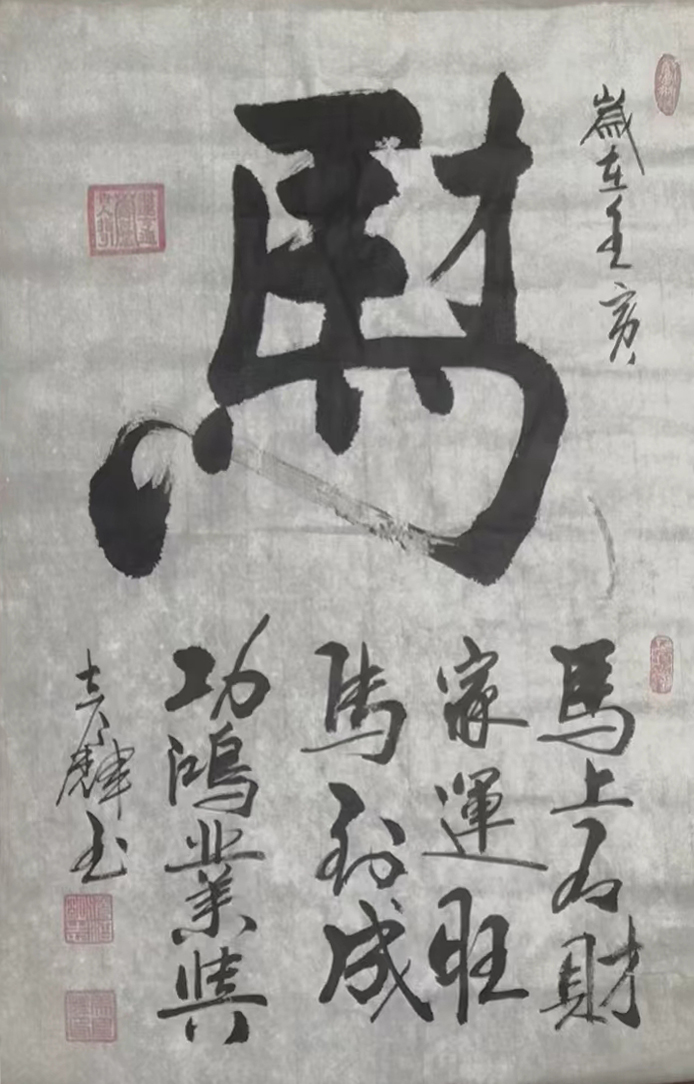 歲在壬寅
馬
馬上有財
家運旺
馬到成
功鴻業興
书